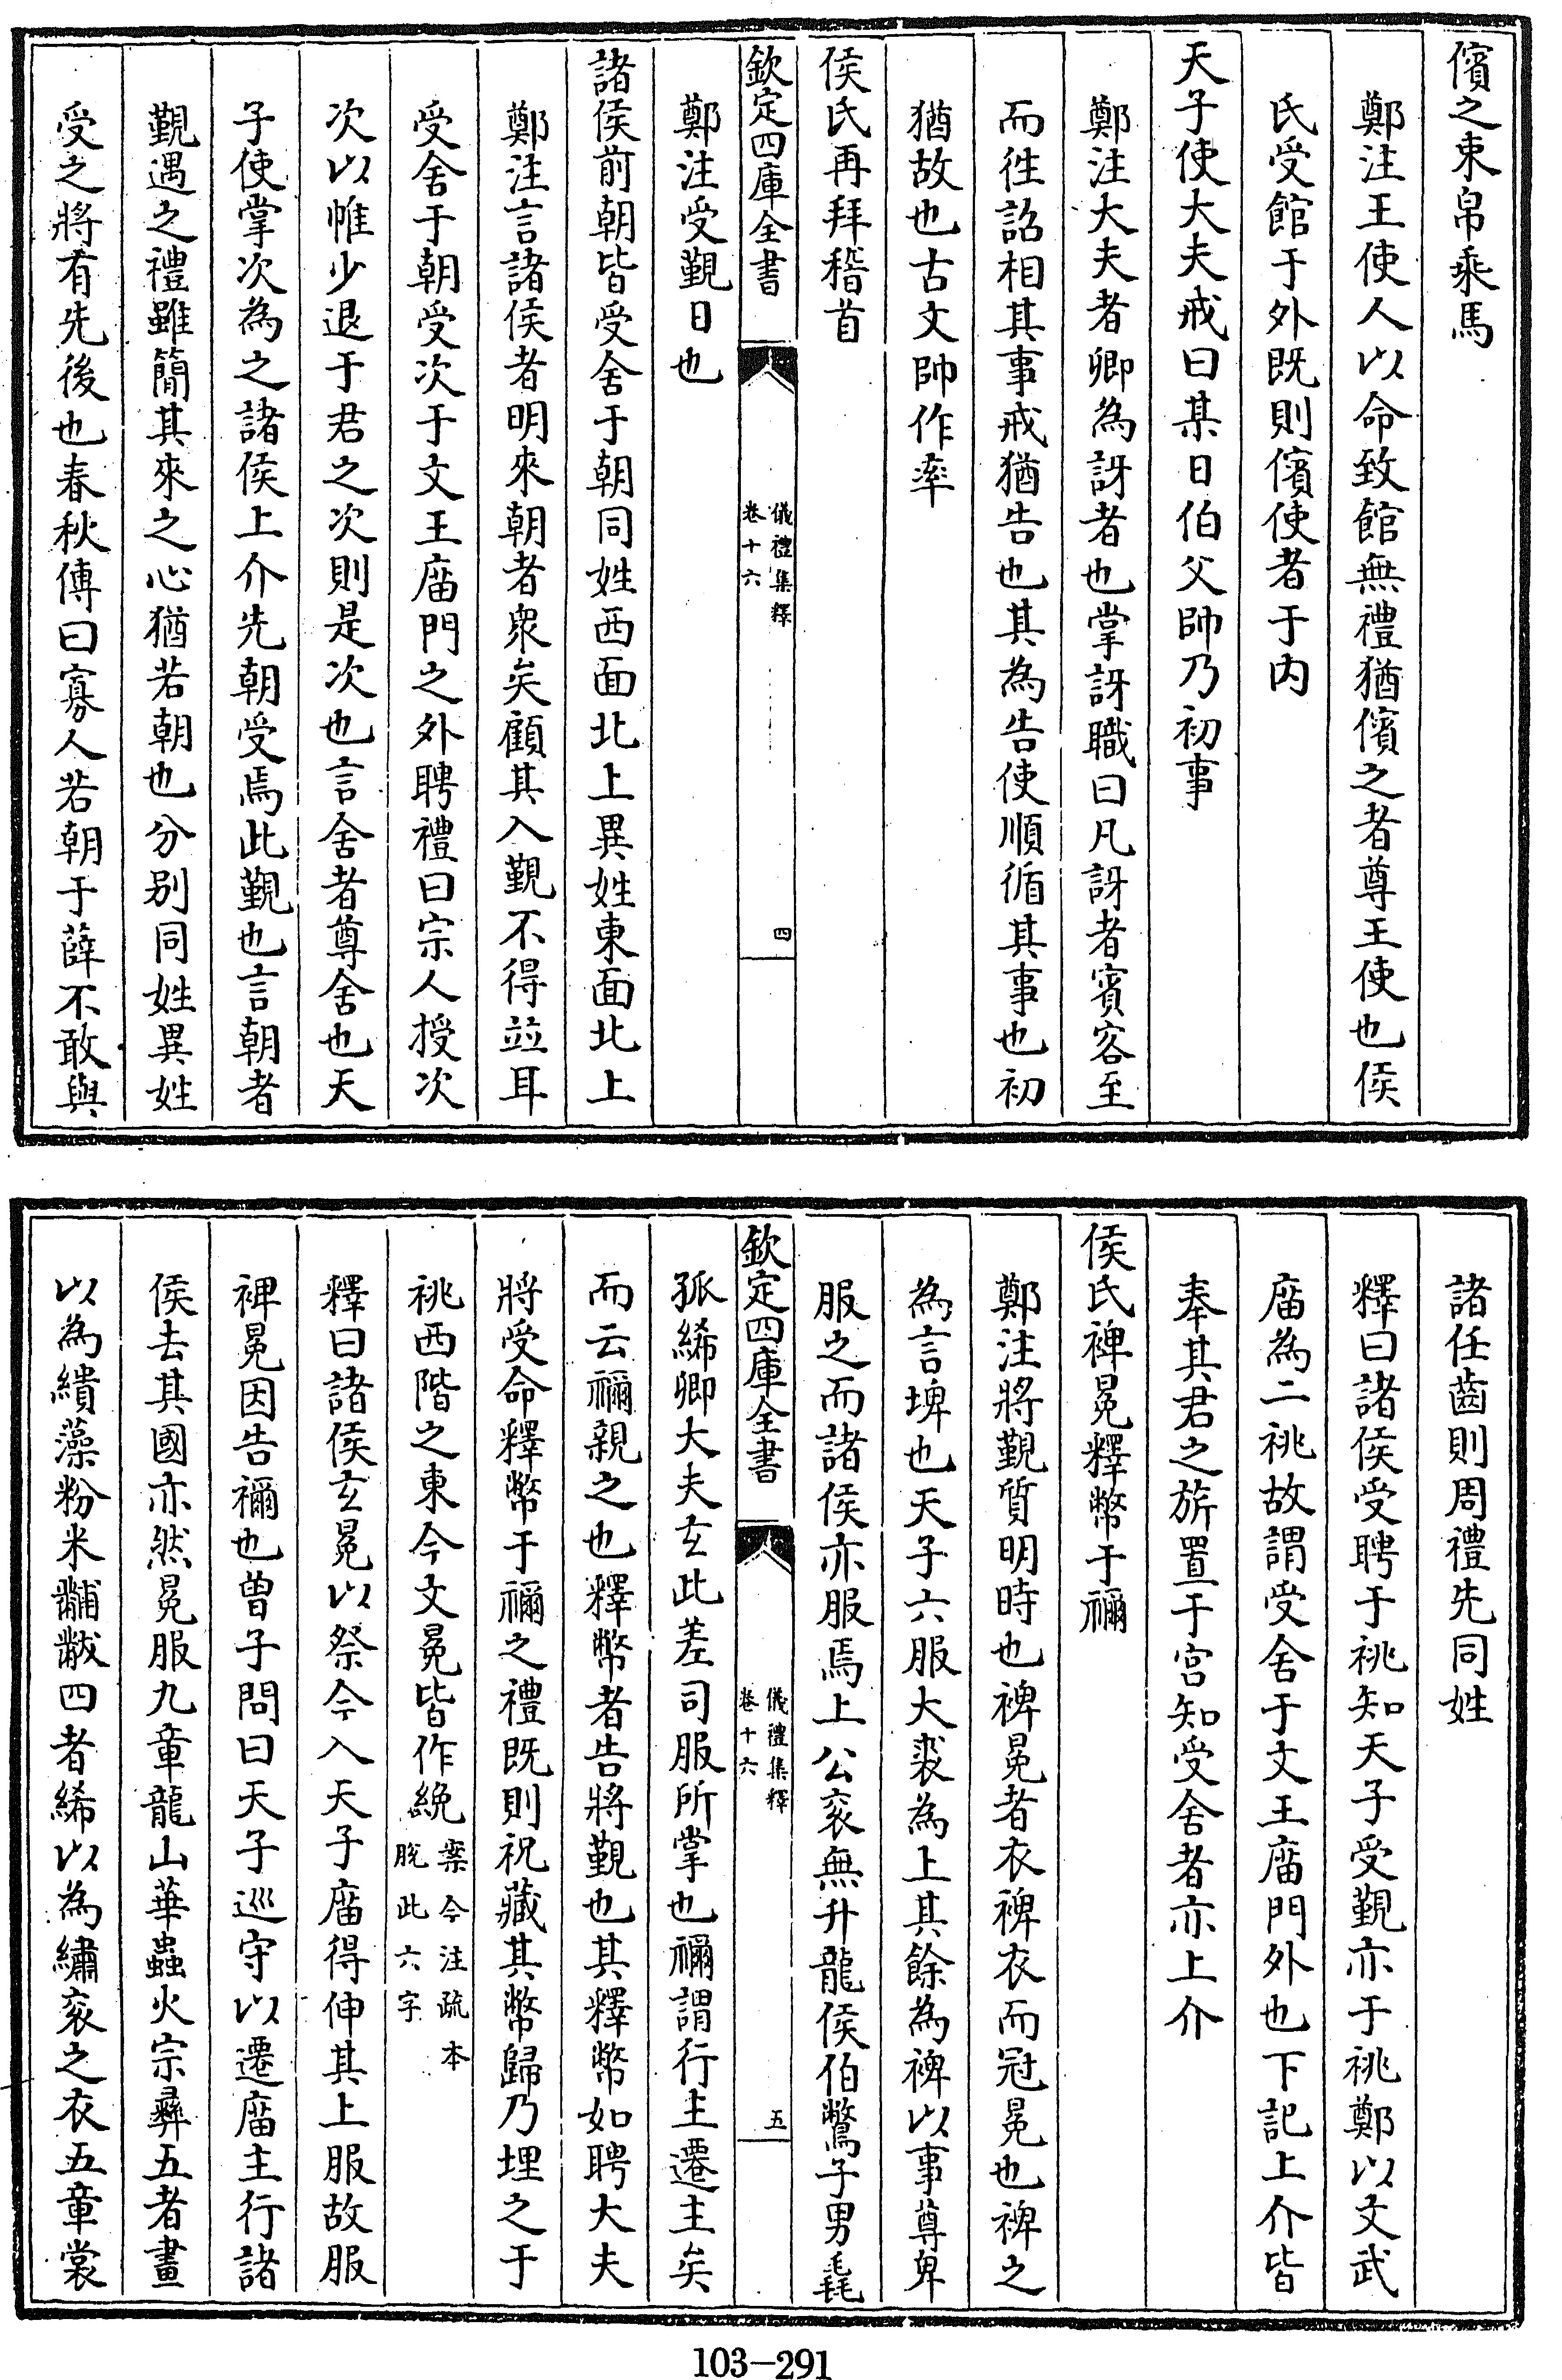 儐之束帛乘馬
鄭注王使人以命致館無禮猶儐之者尊王使也侯
氏受館于外既則儐使者于内
天子使大夫戒曰某日伯父帥乃初事
鄭注大夫者卿為訝者也掌訝職曰凡訝者賓客至
而徃詔相其事戒猶告也其為告使順循其事也初
猶故也古文帥作率
侯氏再拜稽首
欽定四庫全書
儀禮集釋
卷十六
四
鄭注受覲日也
諸侯前朝皆受舍于朝同姓西面北上異姓東面北上
鄭注言諸侯者明來朝者衆矣顧其入覲不得竝耳
受舍于朝受次于文王庿門之外聘禮曰宗人授次
次以帷少退于君之次則是次也言舍者尊舍也天
子使掌次為之諸侯上介先朝受焉此覲也言朝者
覲遇之禮雖簡其來之心猶若朝也分别同姓異姓
受之將有先後也春秋傳曰寡人若朝于薛不敢與
諸任齒則周禮先同姓
釋曰諸侯受聘于祧知天子受覲亦于祧鄭以文武
庿為二祧故謂受舍于文王庿門外也下記上介皆
奉其君之旂置于宫知受舍者亦上介
侯氏裨冕釋幣于禰
鄭注將覲質明時也裨冕者衣裨衣而冠冕也裨之
為言埤也天子六服大裘為上其餘為裨以事尊卑
服之而諸侯亦服焉上公衮無升龍侯伯鷩子男毳
欽定四庫全書
儀禮集釋
卷十六
五
孤絺卿大夫玄此差司服所掌也禰謂行主遷主矣
而云禰親之也釋幣者告將覲也其釋幣如聘大夫
將受命釋幣于禰之禮既則祝藏其幣歸乃埋之于
祧西階之東今文冕皆作絻案今注疏本脱此六字
釋曰諸侯玄冕以祭今入天子庿得伸其上服故服
裨冕因告禰也曾子問曰天子巡守以遷庿主行諸
侯去其國亦然冕服九章龍山華蟲火宗彝五者畫
以為繢藻粉米黼黻四者絺以為繡衮之衣五章裳
103-291